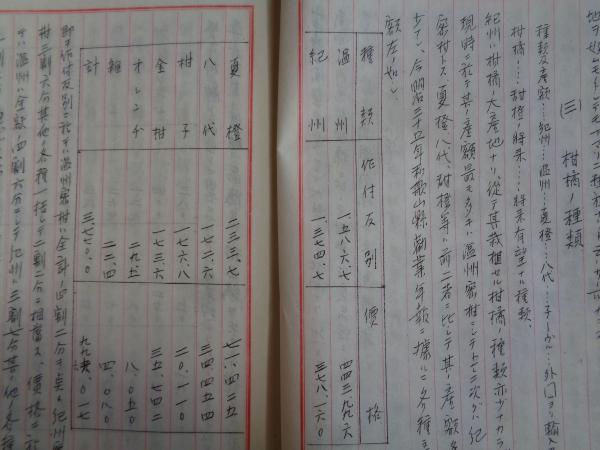 (三) 柑橘ノ種類
種類及産額…紀州…温州…夏橙…八代…ネーヴル…外国ヨリ輸入
柑橘……甜橙ノ将来……将来有望ナル種類、
紀州ハ柑橘ノ大産地ナリ、従テ其栽植セル柑橘ノ種類亦少ナカラ
現時ニ於テ其産額最モ多キハ温州蜜柑ニシテ之ニ次グハ紀
蜜柑トス、夏橙、八代、甜橙等ハ前二者ニ比シテ其産額
少ナシ、今明治三十五年和歌山縣農業年報ニ據ルニ各種
額左ノ如シ
種類 作付反別 價格
温州 一五八六、七 四四三九九六
紀州 一、三七四、七 三七八、一六〇
夏橙 二三三、七 七一、四二五
八代 一七二、六 三四、四五四
柑子 一七六、八 二〇、一一〇
金柑 一七三、六 三五、七四二
オレンヂ 二九、五 八、〇五〇
雑 二二、四 四、〇八〇
計 三七七〇、〇 九九六、〇一七
即チ作付反別ニ於テハ温州蜜柑ハ全計ノ四割二分ヲ
柑三割六分其他ノ各種一括シテ二割二分ニ相當ス、價格ニ於
テハ温州ハ全額ノ四割六分ニシテ紀州ハ三割七分其ノ他ノ各種